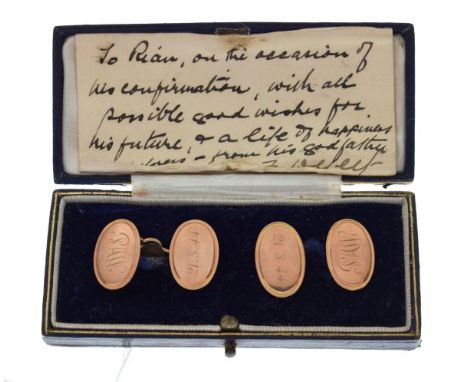 To Rian, on the occasion of
his confirmation, with all
possible good wishes for
his future, & a life of happiness
from his godfather
21.3.44
21.3.44